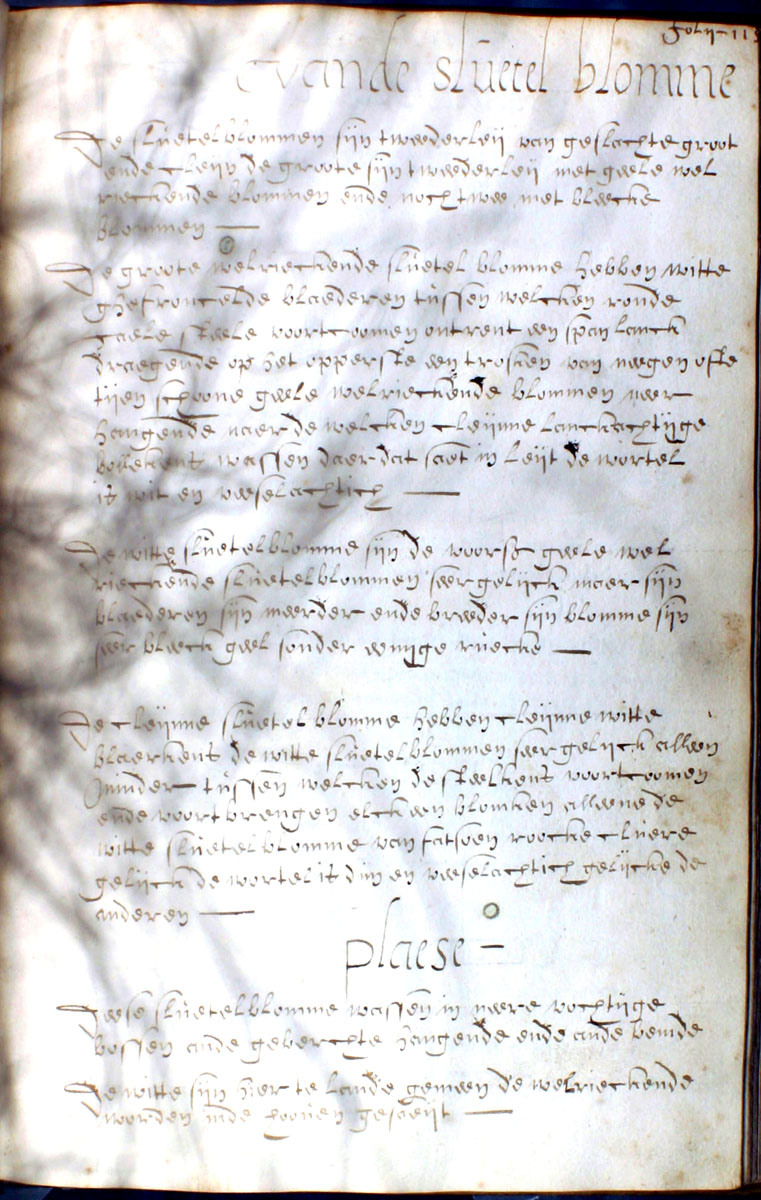 folij - 115
vande sluetel blomme
De sluetelblommen sijn tweederleij van geslachte groot
ende cleijn de groote sijn tweederleij met geele wel
rieckende blommen ende noch twee met bleecke
blommen —
De groote welrieckende sluetel blomme hebben witte
ghefroncelde blaederen tussen welcken ronde
caele steele voortcoomen ontrent een span lanck
draegende op het opperste een trosken van neegen ofte
tijen schoone geele welrieckende blommen neer
hangende naer de welcken cleijnne lanckachtijge
bollekens wassen daer dat saet in leijt de wortel
is wit en veeselachtich —
De witte sluetelblomme sijn de voorsc geele wel
rieckende sluetelblommen seer gelijck maer sijn
blaederen sijn meerder ende breeder sijn blomme sijn
seer bleeck geel sonder eenijge ruecke —
De cleijnne sluetel blomme hebben cleijnne witte
blaerkens de witte sluetelblommen seer gelijck alleen
minder tussen welcken de steelkens voortcoomen
ende voortbrengen elck een blomken alleene de
witte sluetelblomme van fatsoen roocke cluere
gelijck de wortel is din en veeselachtich gelijcke de
anderen —
plaese —
Deese sluetelblomme wassen in neere vochtijge
bossen ande geberchte hangende ende ande bemde
De witte sijn hier te lande gemeen de welrieckende
worden inde hooven gesaeijt —